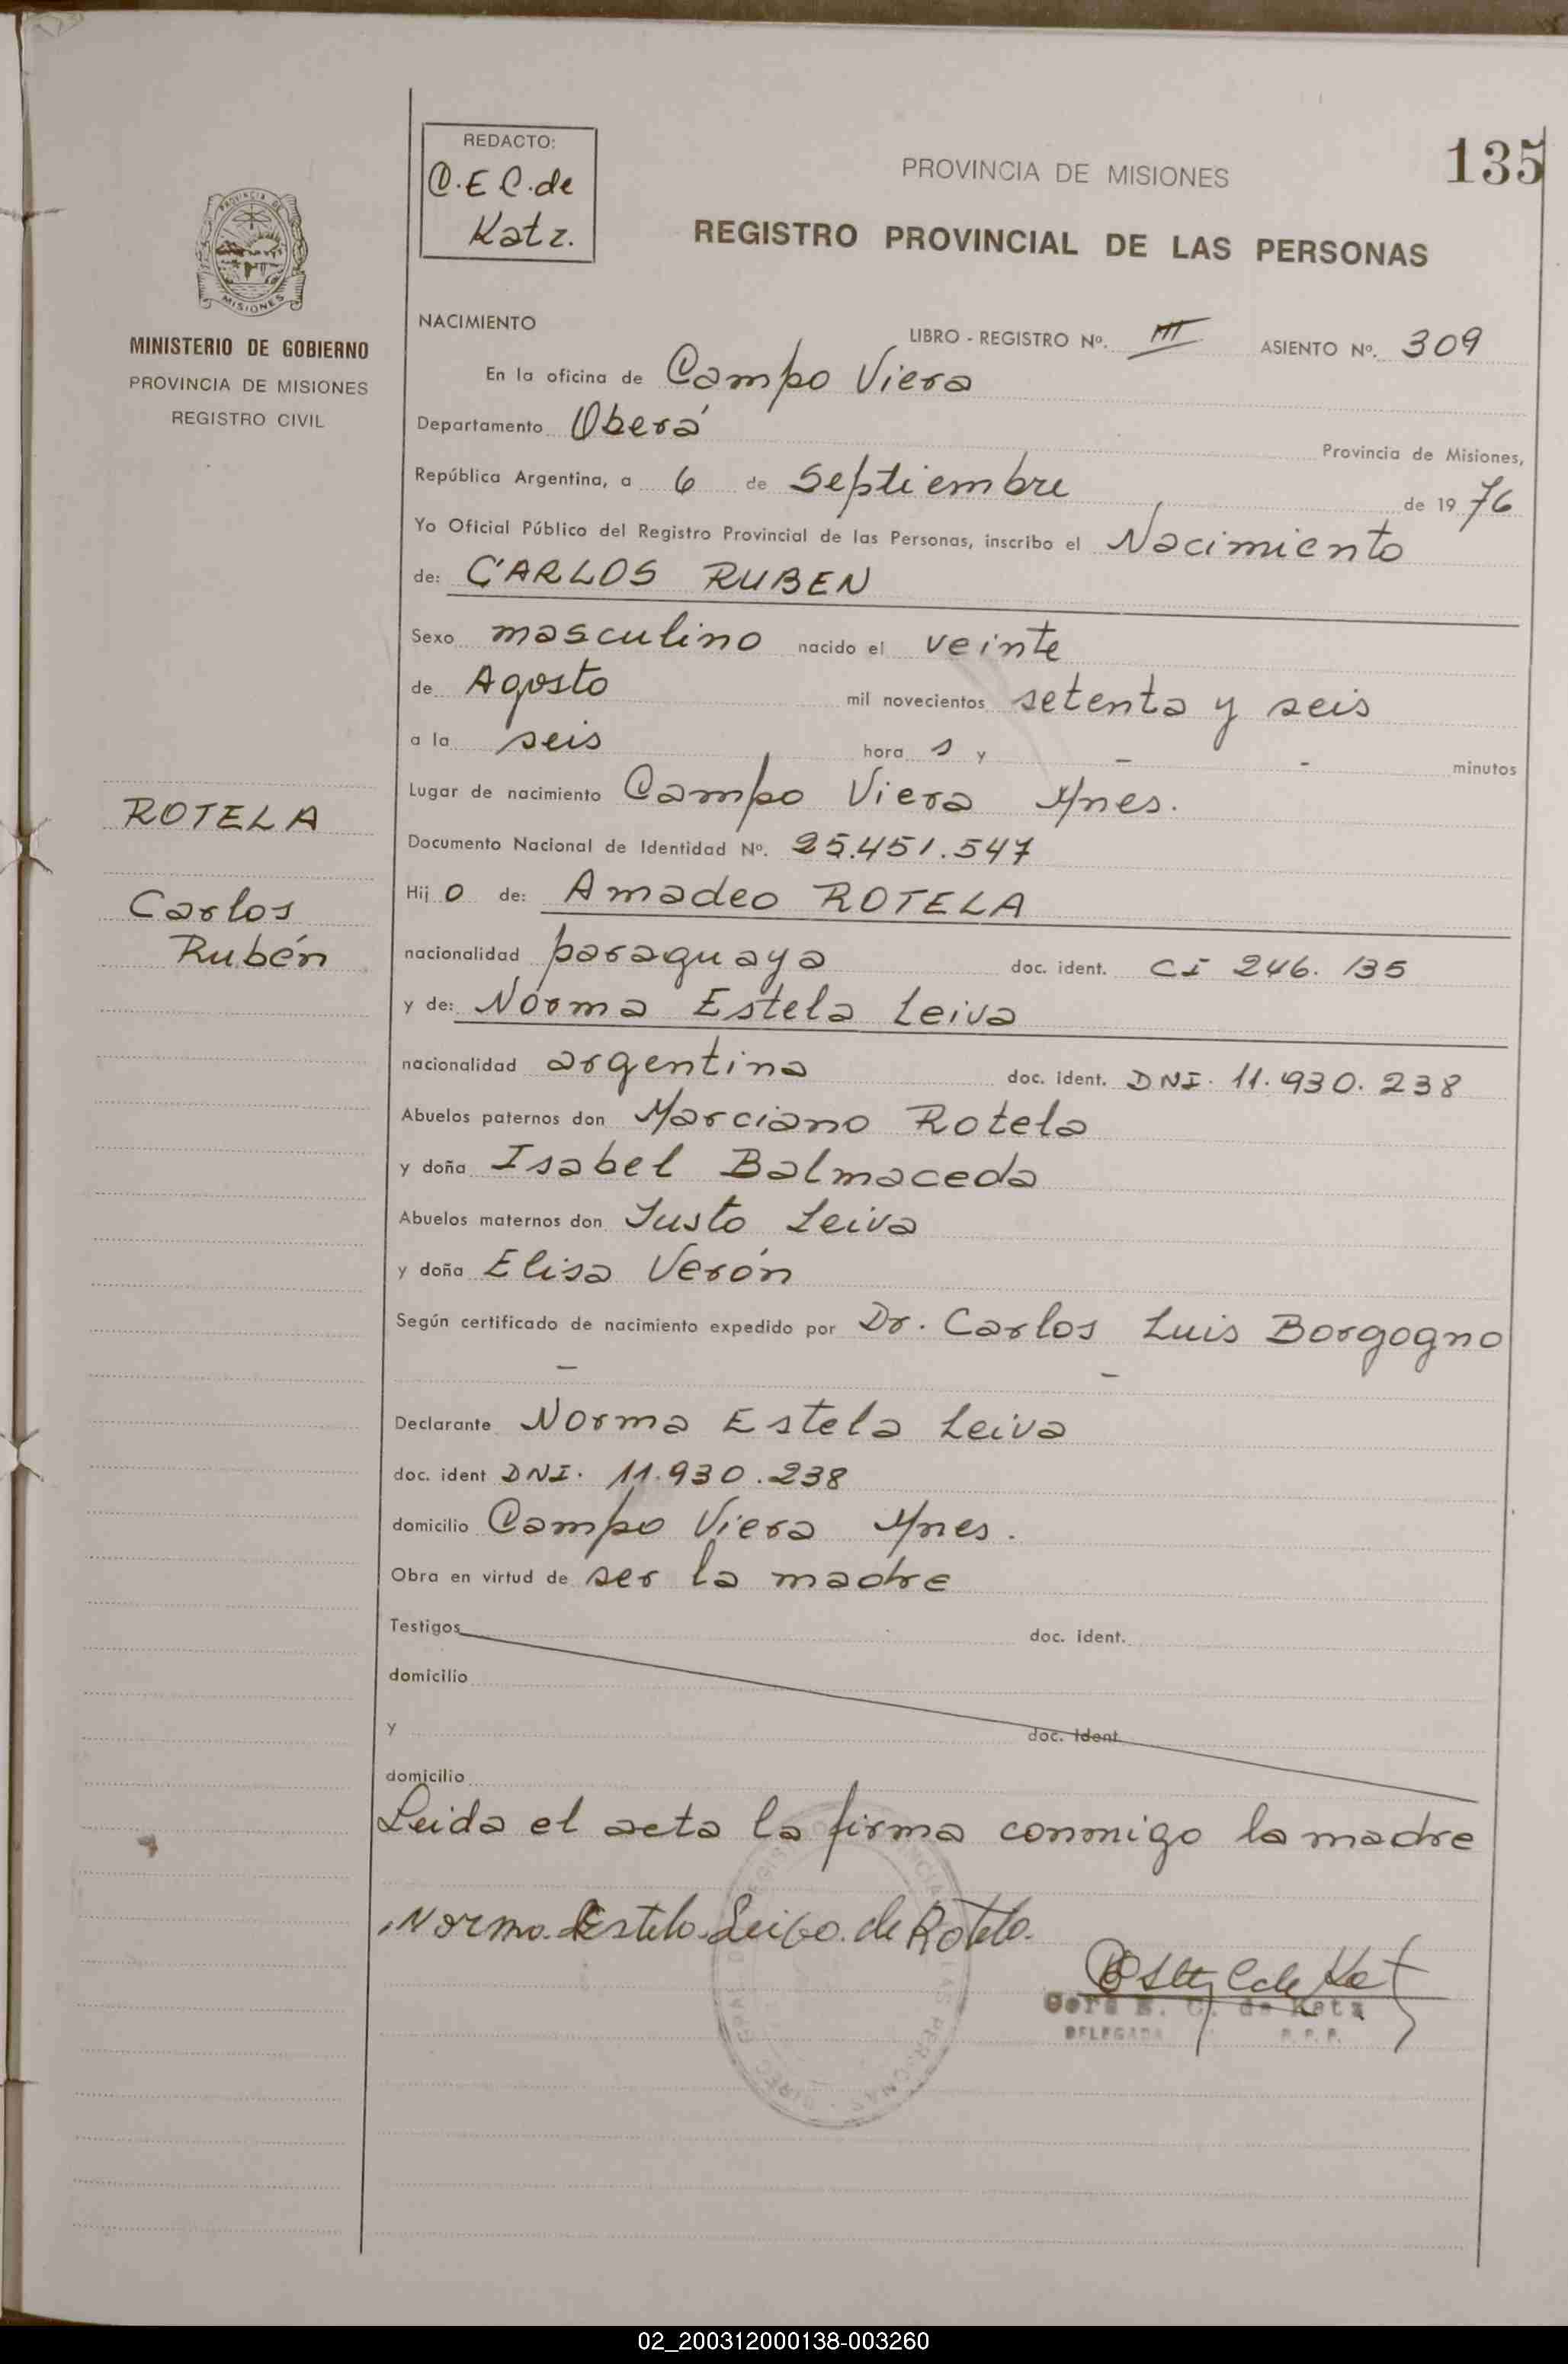 135
REDACTO:
C.E C.de
Katz.
PROVINCIA DE MISIONES
REGISTRO PROVINCIAL DE LAS PERSONAS
PROVINCIA DE
MISIONES
MINISTERIO DE GOBIERNO
PROVINCIA DE MISIONES
REGISTRO CIVIL
ROTELA
Carlos
Rubén
NACIMIENTO LIBRO - REGISTRO Nº. III ASIENTO Nº. 309
En la oficina de Campo Viera
Departamento Oberá Provincia de Misiones,
República Argentina, a 6 de Septiembre de 1976
Yo Oficial Público del Registro Provincial de las Personas, inscribo el Nacimiento
de: CARLOS RUBEN
Sexo masculino nacido el veinte
de Agosto mil novecientos setenta y seis
a la seis hora s y - - minutos
Lugar de nacimiento Campo Viera Mnes.
Documento Nacional de Identidad Nº. 25.451.547
Hij o de: Amadeo ROTELA
nacionalidad paraguaya doc. ident. CI 246. 135
y de: Norma Estela Leiva
nacionalidad argentina doc. ident. DNI. 11.930.238
Abuelos paternos don Marciano Rotela
y doña Isabel Balmaceda
Abuelos maternos don Justo Leiva
y doña Elisa Verón
Según certificado de nacimiento expedido por Dr. Carlos Luis Borgogno
- -
Declarante Norma Estela Leiva
doc. ident DNI. 11.930.238
domicilio Campo Viera Mnes.
Obra en virtud de ser la madre
Testigos doc. ident.
domicilio
y doc. ident.
domicilio
Leida el acta la firma conmigo la madre
Norma Estela Leiva de Rotela
C. de Katz
DELEGADA R. P. P.
02_200312000138-003260